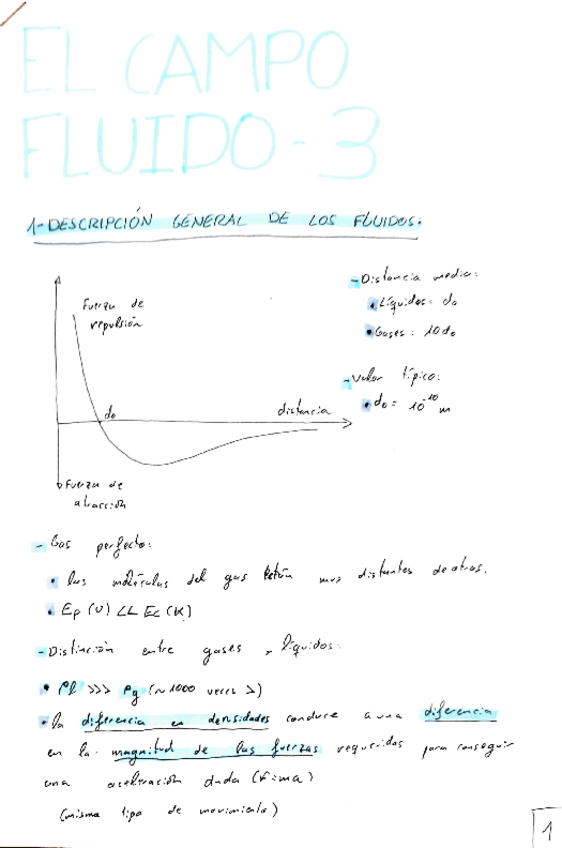 EL CAMPO
FLUIDO - 3
1- DESCRIPCIÓN GENERAL DE LOS FLUIDOS:
Fuerza de
repulsión
do
distancia
Fuerza de
atracción
- Distancia media:
• Líquidos: do
• Gases: 10do
- Valor típico:
• do = 10⁻¹⁰ m
- Gas perfecto:
• las moléculas del gas están muy distantes de otras.
• Ep (U) << Ec (K)
- Distinción entre gases y líquidos:
• ρl >>> ρg (~ 1000 veces >)
• la diferencia en densidades conduce a una diferencia
en la magnitud de las fuerzas requeridas para conseguir
una aceleración dada (F=ma)
(mismo tipo de movimiento)
1